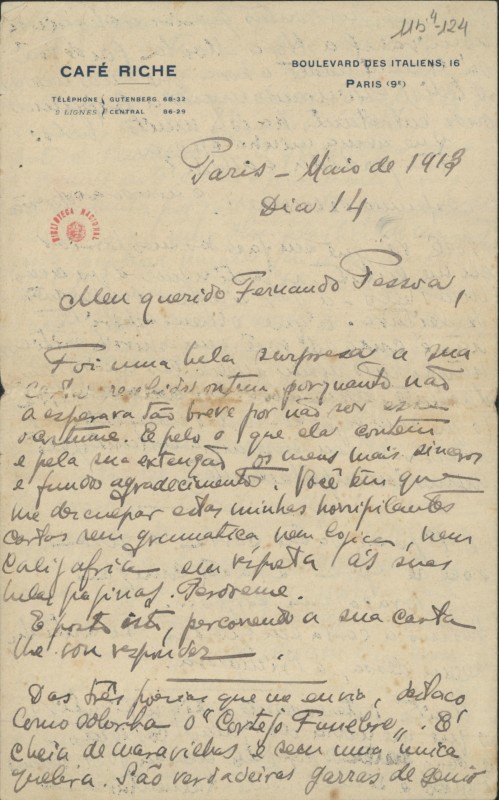 115⁴-124
CAFÉ RICHE
BOULEVARD DES ITALIENS, 16
PARIS (9e)
TÉLÉPHONE GUTENBERG 68-32
2 LIGNES CENTRAL 86-29
Paris - Maio de 1913
Dia 14
BIBLIOTECA NACIONAL
Meu querido Fernando Pessoa,
Foi uma bela surpresa a sua
carta recebida ontem porquanto não
a esperava tão breve por não ser esse
o costume. E pelo o que ela contém
e pela sua extenção os meus mais sinceros
e fundos agradecimentos. Você tem que
me desculpar estas minhas horripilantes
cartas sem gramatica, nem logica, nem
caligrafia em resposta ás suas
belas paginas. Perdoeme.
E posto isto, percorrendo a sua carta
lhe vou responder.
Das três poesias que me envia, destaco
como obra o "Cortejo Funebre". É
cheia de maravilhas e sem uma unica
quebra. São verdadeiras garras de genio